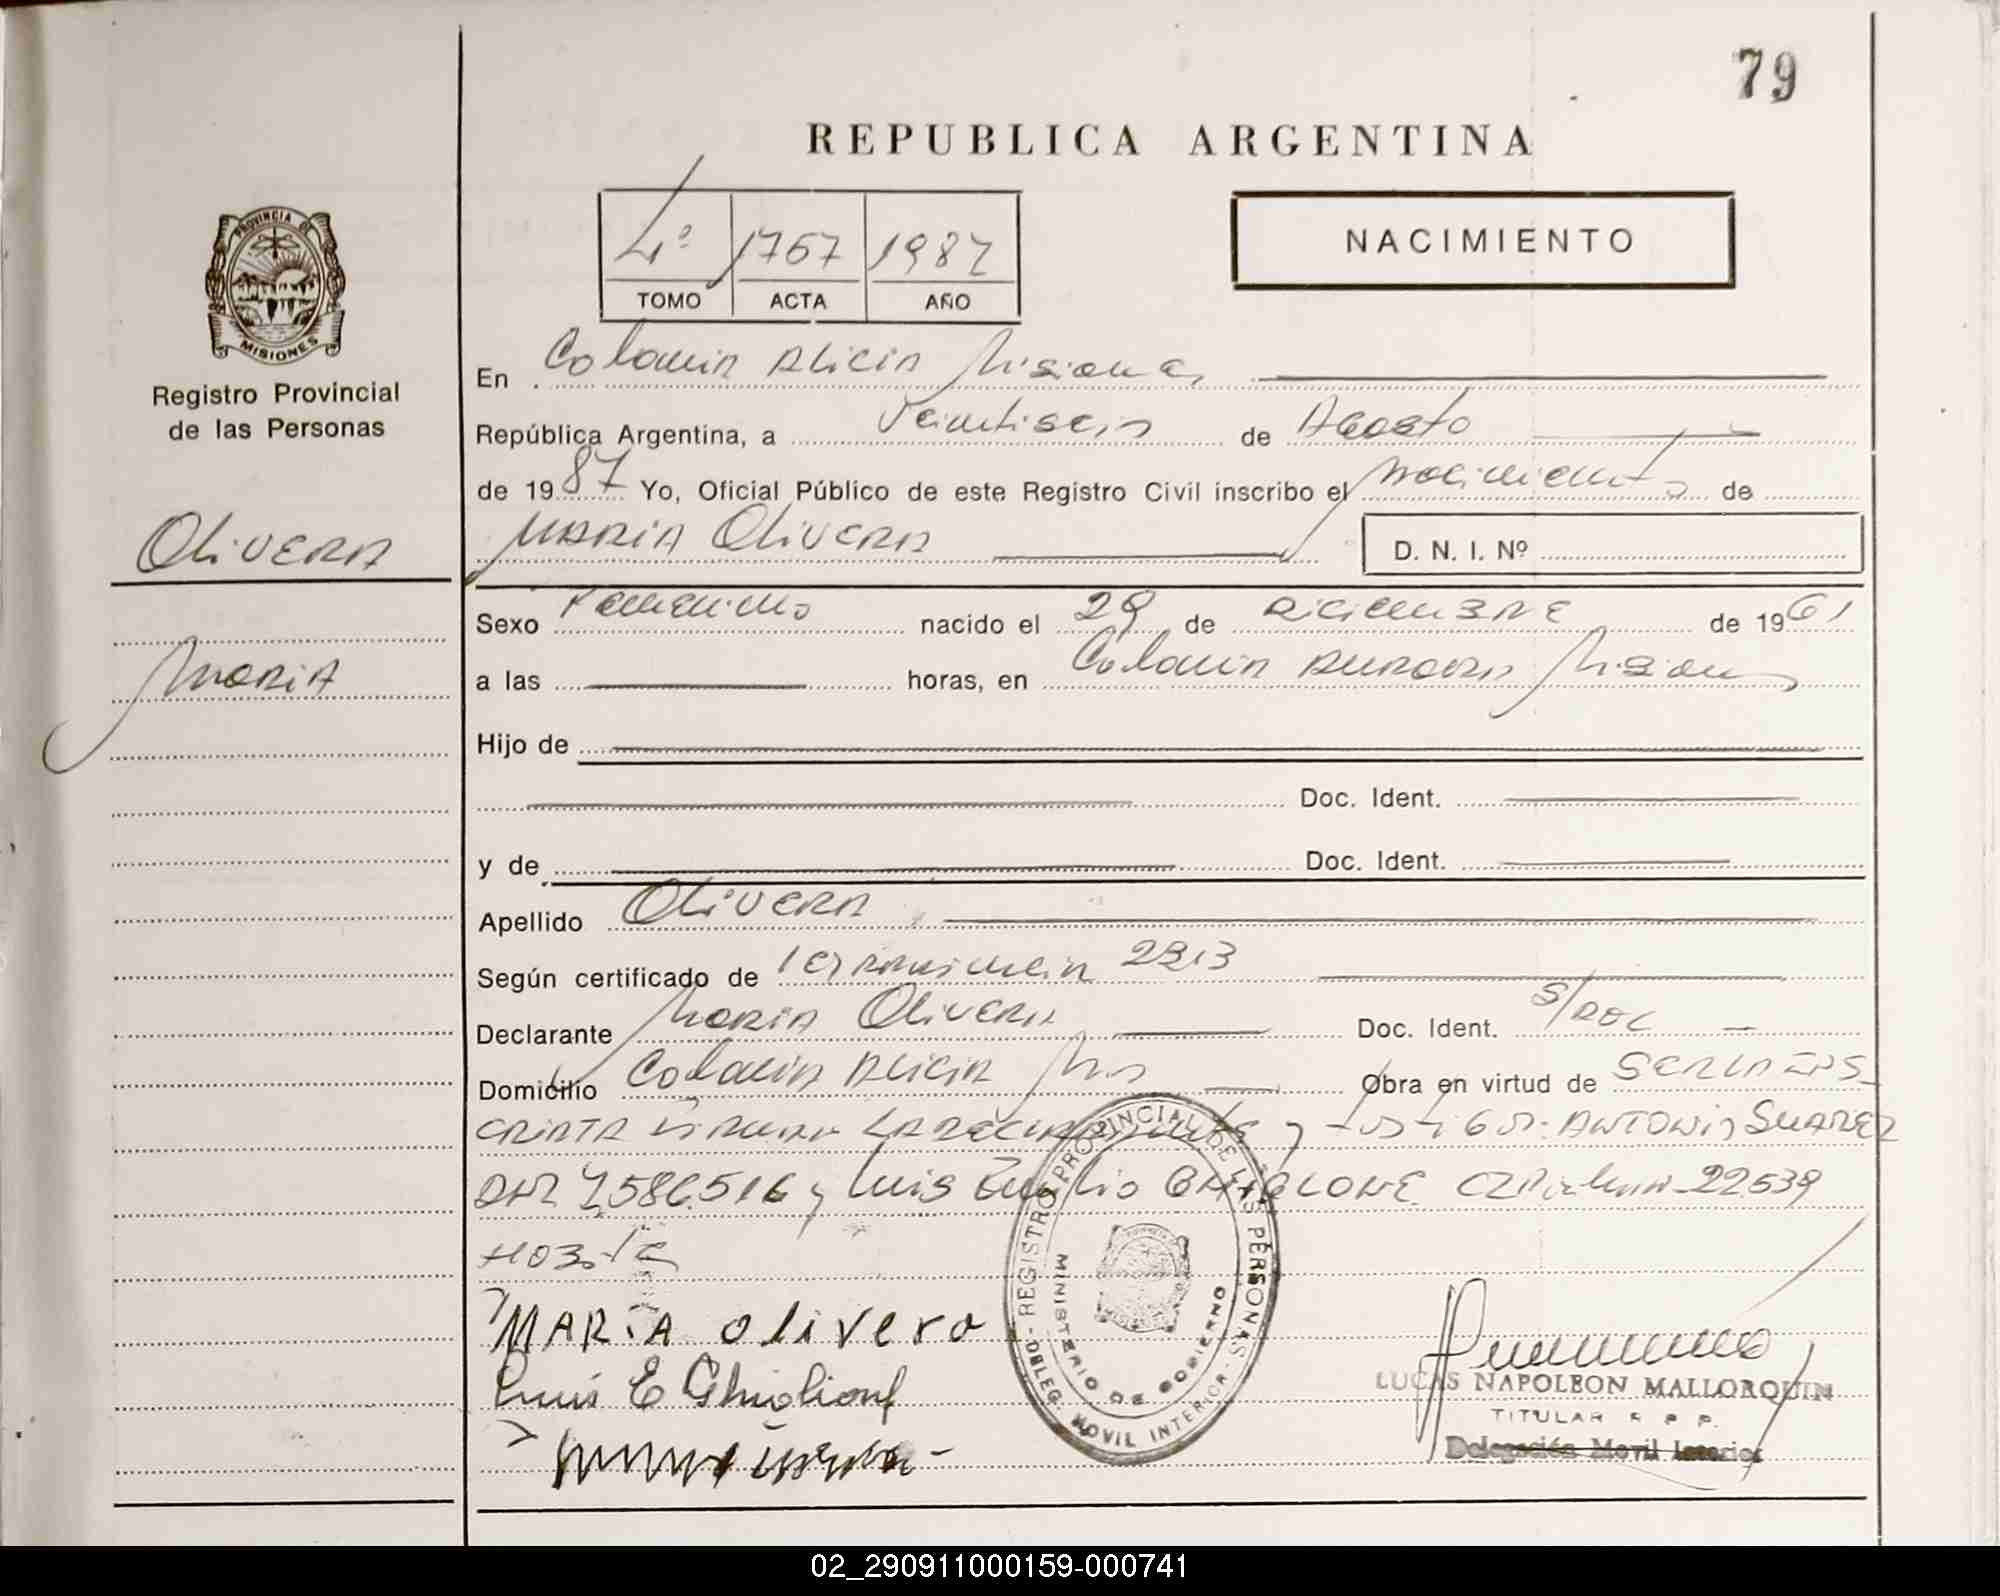 79
REPUBLICA ARGENTINA
4º 1767 1987
TOMO ACTA AÑO
NACIMIENTO
PROVINCIA DE
MISIONES
Registro Provincial
de las Personas
Olivera
Maria
En Colonia Alicia Misiones
República Argentina, a Veintiseis de Agosto
de 1987 Yo, Oficial Público de este Registro Civil inscribo el Nacimiento de
MARIA Olivera D. N. I. Nº
Sexo Femenino nacido el 29 de Diciembre de 1961
a las horas, en Colonia Aurora Misiones
Hijo de
Doc. Ident.
y de Doc. Ident.
Apellido Olivera
Según certificado de 2913
Declarante Maria Olivera Doc. Ident. S/DOC
Domicilio Colonia Alicia Mns Obra en virtud de
y testigos: Antonio Suarez
7.586.516 y Luis Emilio 22539
MARIA olivera
Luis E Ghiglione
REGISTRO PROVINCIAL DE LAS PERSONAS
MINISTERIO DE GOBIERNO
DELEG. MOVIL INTERIOR
LUCAS NAPOLEON MALLORQUIN
TITULAR R P P.
Delegación Movil Interior
02_290911000159-000741